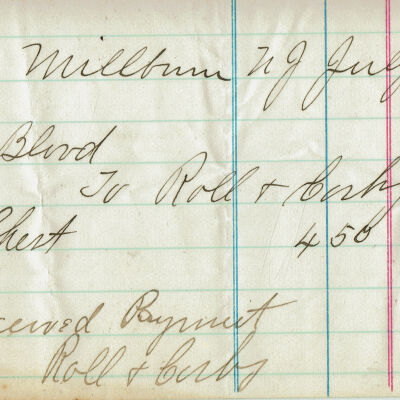 Millburn NJ Jul
Blood
To Roll + Corby
Chest 4 50
ceived Payment
Roll + Corby